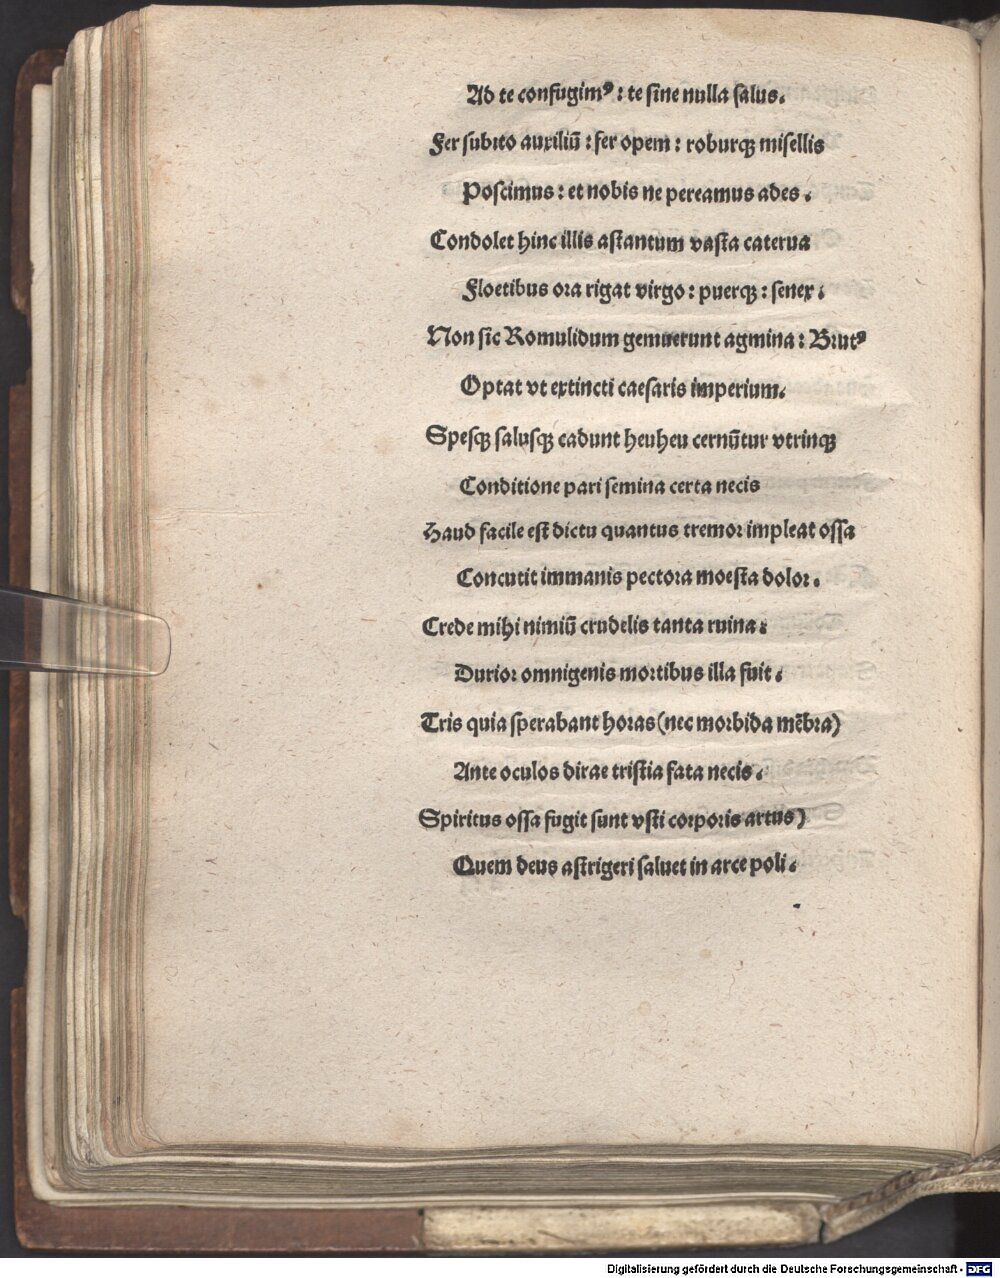 Ad te confugimꝰ : te sine nulla salus.
Fer subito auxiliū : fer opem : roburqꝫ misellis
Poscimus : et nobis ne pereamus ades.
Condolet hinc illis astantum vasta caterua
Floetibus ora rigat virgo : puerqꝫ : senex :
Non sic Romulidum gemuerunt agmina : Brutꝰ
Optat vt extincti caesaris imperium.
Spesqꝫ salusqꝫ cadunt heuheu cernūtur vtrinqꝫ
Conditione pari semina certa necis
Haud facile est dictu quantus tremor impleat ossa
Concutit immanis pectora moesta dolor.
Crede mihi nimiū crudelis tanta ruina :
Durior omnigenis mortibus illa fuit.
Tris quia sperabant horas (nec morbida mēbra)
Ante oculos dirae tristia fata necis.
Spiritus ossa fugit sunt vsti corporis artus)
Quem deus astrigeri saluet in arce poli.
Digitalisierung gefördert durch die Deutsche Forschungsgemeinschaft - DFG